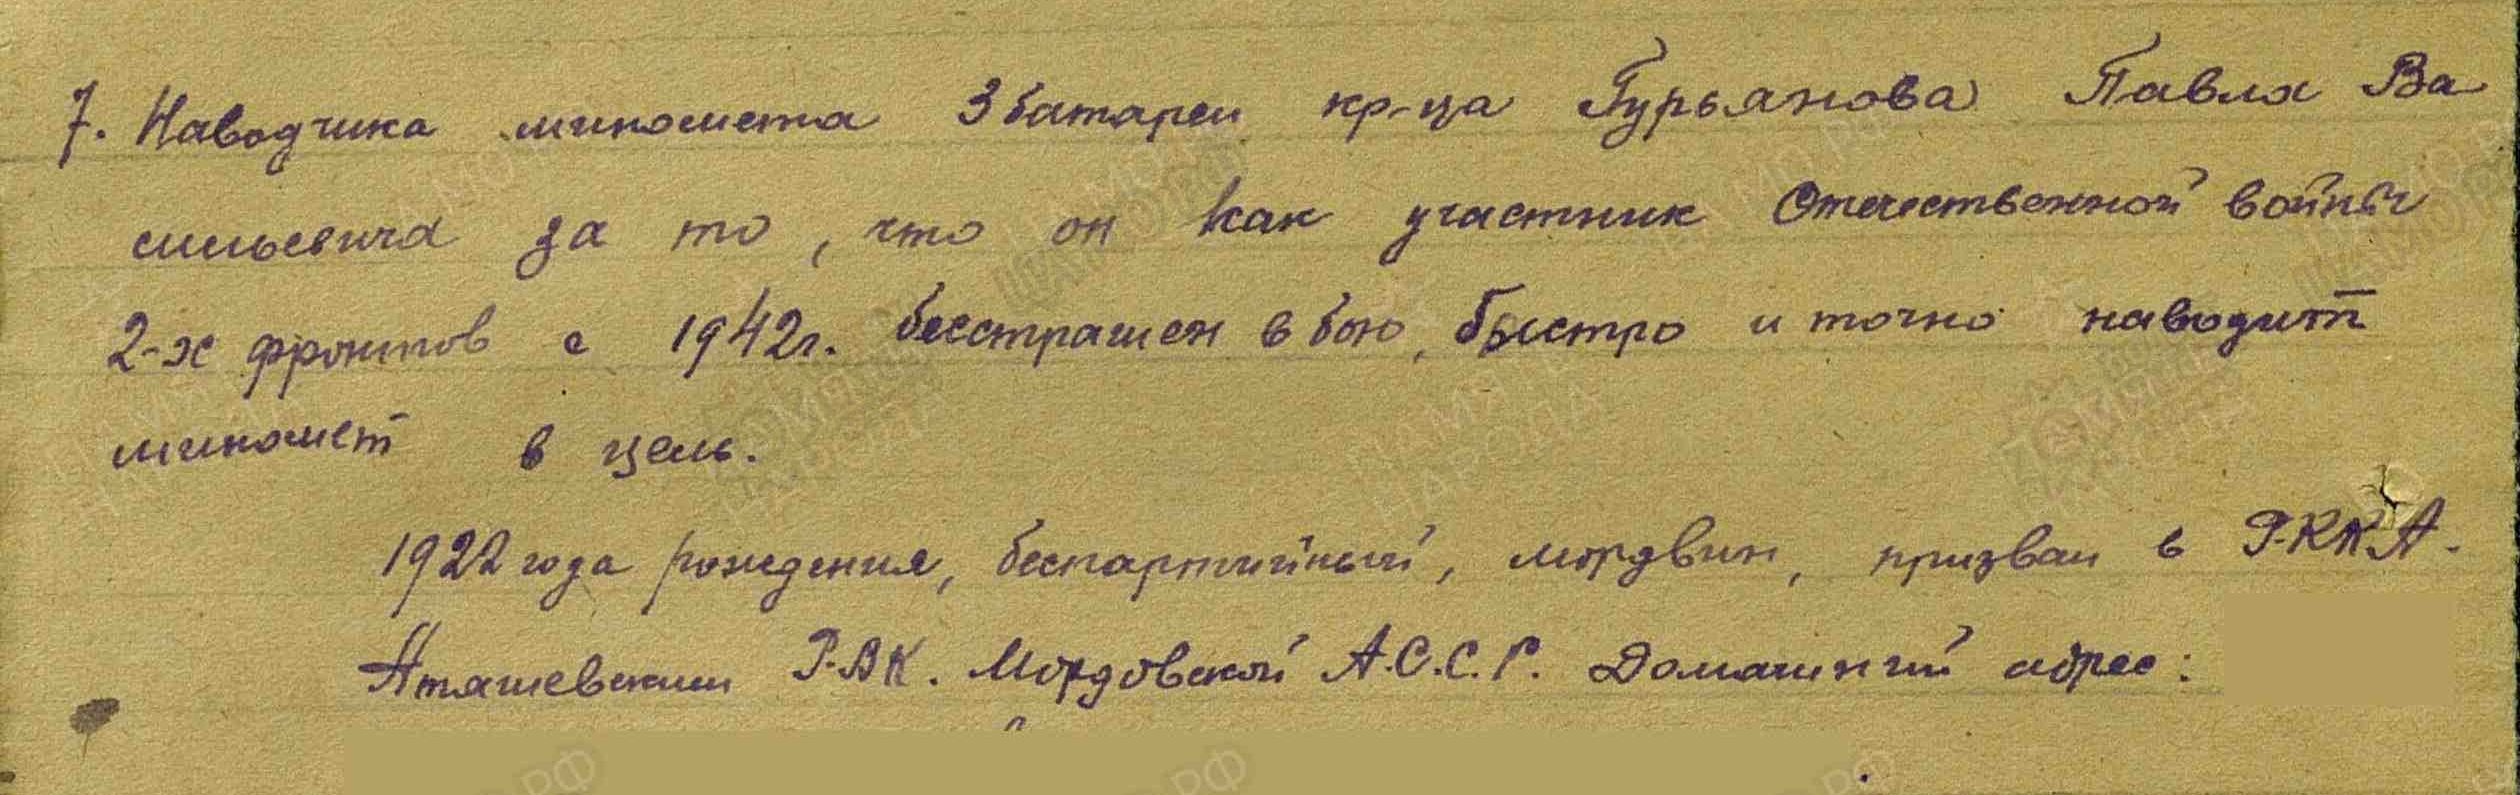 7. Наводчика миномета 3 батареи кр-ца Гурьянова Павла Ва
сильевича за то, что он как участник Отечественной войны
2-х фронтов с 1942г. бесстрашен в бою, быстро и точно наводит
миномет в цель.
1922 года рождения, беспартийный, мордвин, призван в Р.К.К.А.
Атяшевским Р.В.К. Мордовской А.С.С.Р. Домашний адрес: